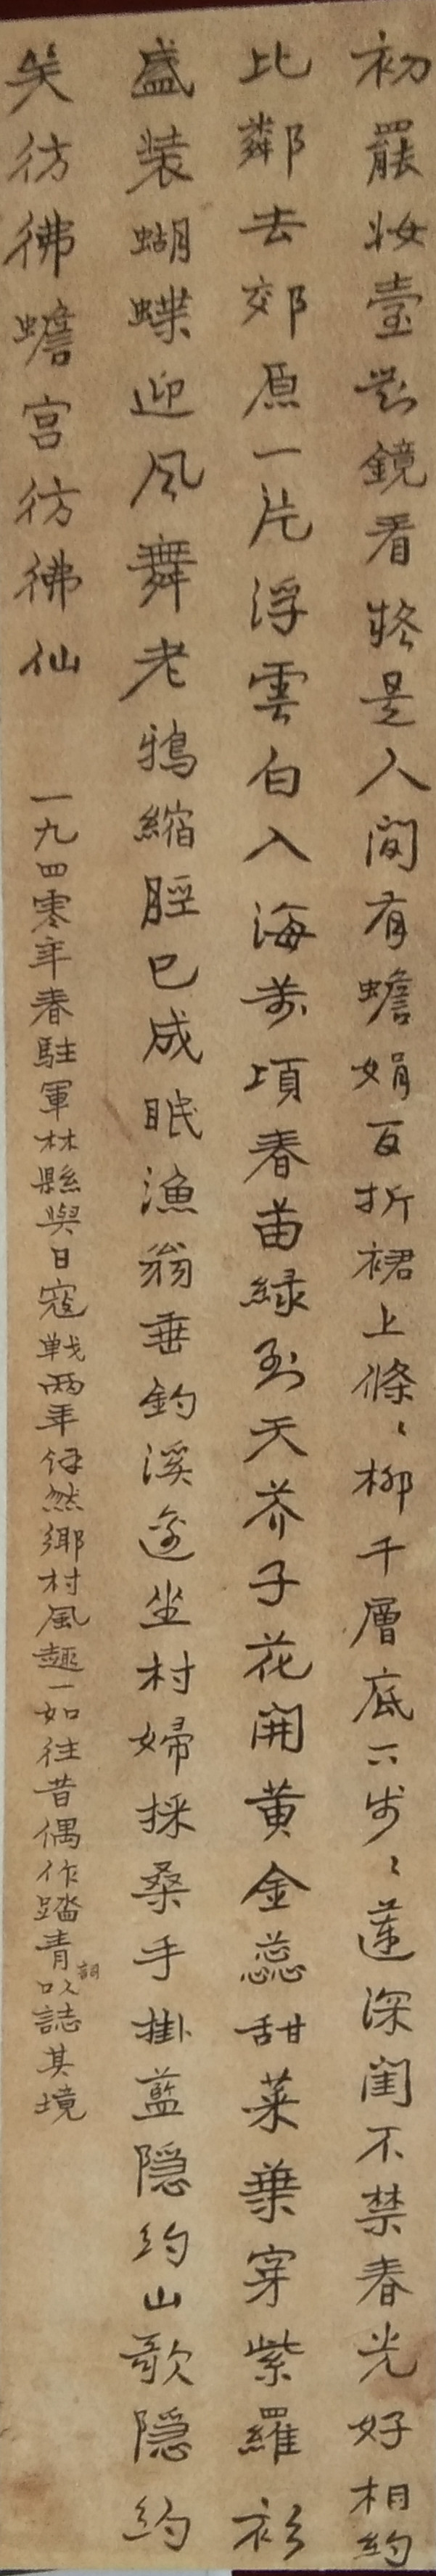 初罷妝臺對鏡看疑是人間有蟾娟百折裙上條〻柳千層底下步〻蓮深閨不禁春光好相約
比鄰去郊原一片浮雲白入海萬頃春苗緑到天芥子花開黄金蕊甜菜葉穿紫羅衫
盛装蝴蝶迎風舞老鴉縮脛已成眠漁翁垂釣溪邊坐村婦採桑手掛藍隠約山歌隠約
笑彷彿蟾宫彷彿仙
一九四零年春駐軍林縣與日寇戰两年仔然鄉村風趣一如往昔偶作踏青詞以誌其境